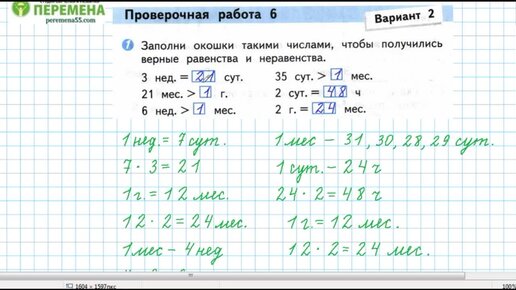 ПЕРЕМЕНА
peremena55.com
Проверочная работа 6
Вариант 2
1 Заполни окошки такими числами, чтобы получились
верные равенства и неравенства.
3 нед. = 21 сут. 35 сут. > 1 мес.
21 мес. > 1 г. 2 сут. = 48 ч
6 нед. > 1 мес. 2 г. = 24 мес.
1 нед. = 7 сут. 1 мес – 31, 30, 28, 29 сут.
7 · 3 = 21 1 сут. – 24 ч
1 г. = 12 мес. 24 · 2 = 48 ч
12 · 2 = 24 мес. 1 г. = 12 мес.
1 мес – 4 нед 12 · 2 = 24 мес.
1604 × 1597пкс 100%